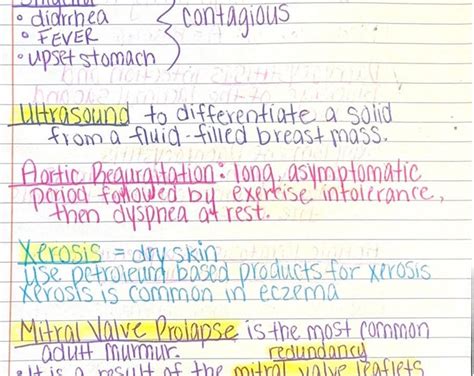 • diarrhea
contagious
• FEVER
• upset stomach
Ultrasound to differentiate a solid
from a fluid-filled breast mass.
Aortic Regurgitation: long, asymptomatic
period followed by exercise intolerance,
then dyspnea at rest.
Xerosis = dry skin
use petroleum based products for xerosis
xerosis is common in eczema
Mitral Valve Prolapse is the most common
adult murmur. redundancy
• It is a result of the mitral valve leaflets